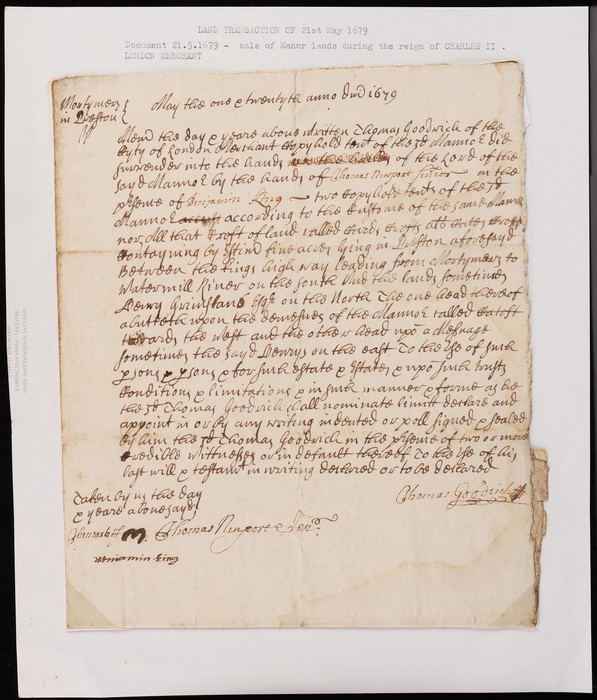 LAND TRANSACTION OF 21st May 1679
Document 21.5.1679 - sale of Manor lands during the reign of CHARLES II .
LONDON MERCHANT
Mortymers
in Preston
May the one & twentyth anno Dnd 1679
Mend the day & yeare above written Thomas Goodrich of the
Citty of London Merchant Copyhold tent of the sd Mannor did
surrender into the hands of the Lord of the
sayd Mannor by the hands of Thomas Newport in the
presence of Benjamin King two Copyhold tents of the sd
Mannor according to the Custome of the same Man
nor All that Croft of land called
Contayning by Estim five acres lying in Preston aforesayd
Between the Kings high way leading from Mortymers to
Watermill River on the South And the lands sometimes
Henry Esqr on the North The one head thereof
abutteth upon the demesnes of the Mannor called
towards the West and the other head upo a Messuage
sometimes the sayd Henrys on the east To the Use of such
pson & psons & for such Estate & Estates & upo such trusts
Conditions & limitations & in such manner & forme as he
the sd Thomas Goodrich shall nominate limitt declare and
appoint in or by any writing indented or poll signed & sealed
by him the sd Thomas Goodrich in the psence of two or more
Credible wittnesses or in default thereof To the Use of his
last will & testamt in writing declared or to be declared
Taken by us the day
& yeare abovesayd
Thomas Goodrich
The mark of
Thomas Newport
Beniamin King